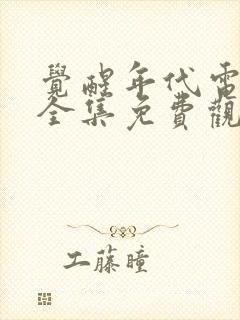 覺醒年代電
全集免費觀
工藤瞳